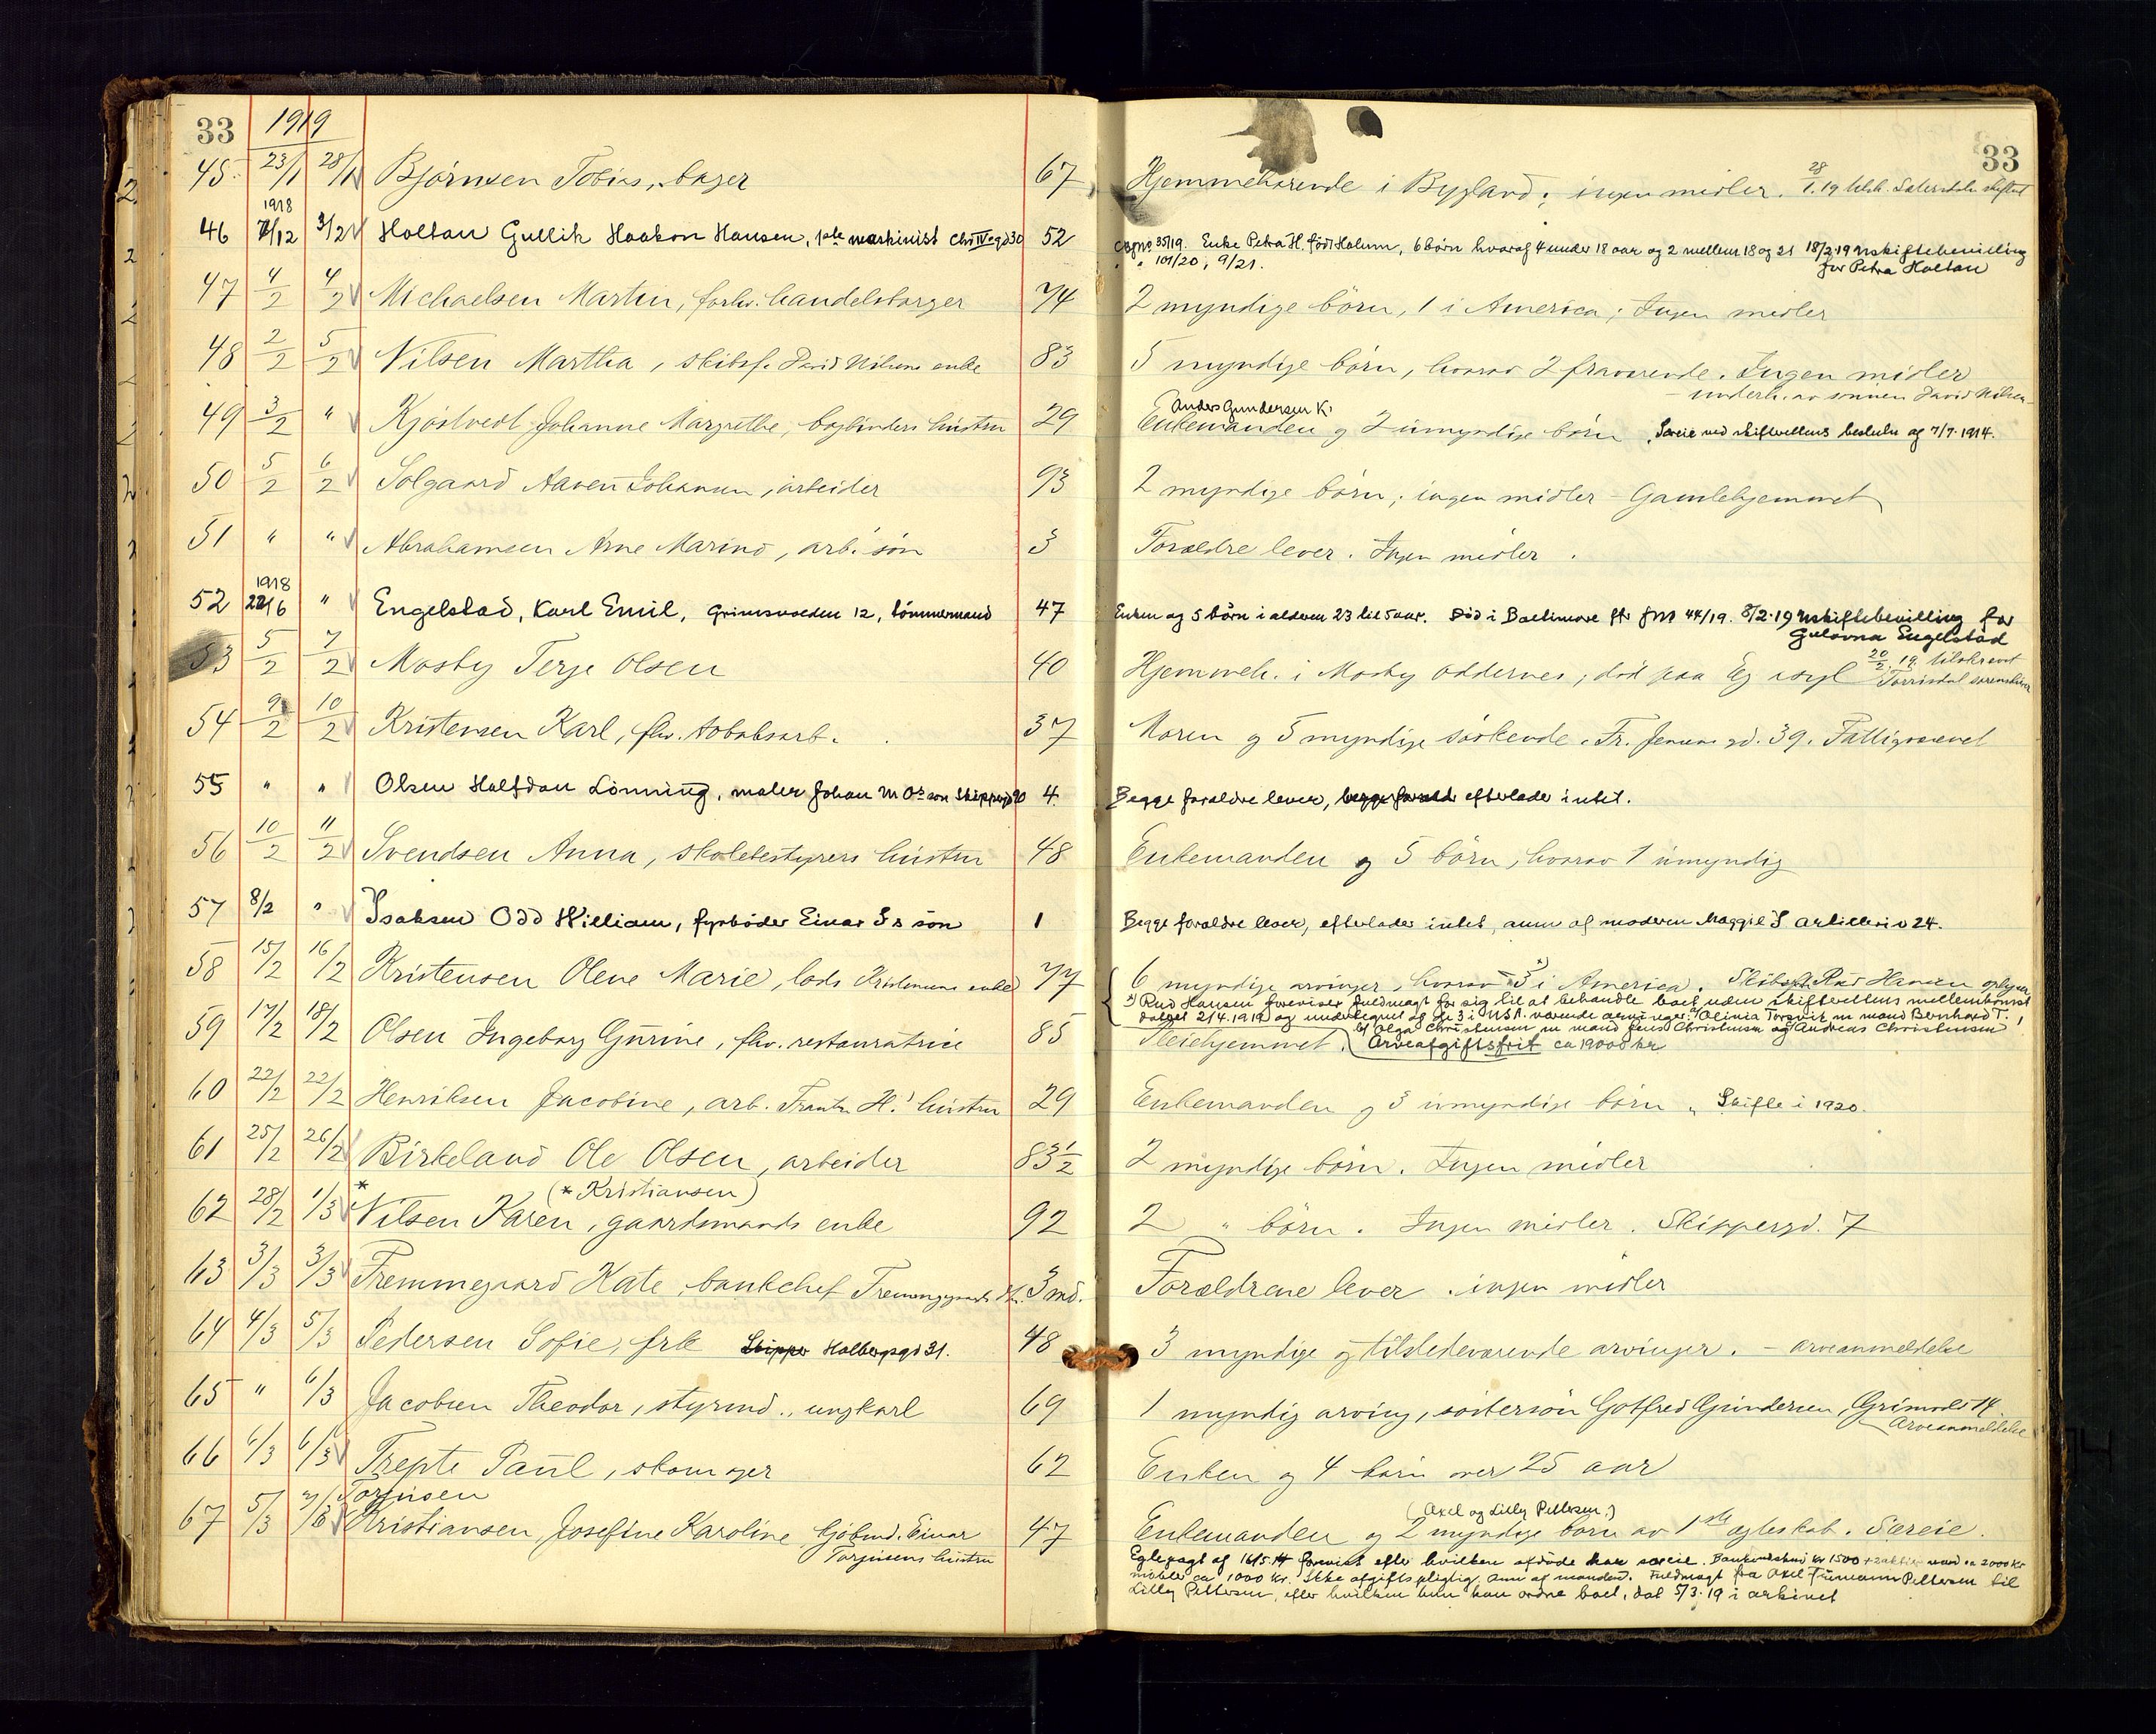 33 1919
45 23/1 28/1 Bjørnsen Tobias, bager 67 Hjemmehørende i Bygland; ingen midler. 28/1.19 tilsk. Sætersdalen skifteret
1918
46 7/12 3/2 Holtan Gullik Haakon Hansen, 1ste maskinist Chr IVs gd 30 52 35/19. Enke Petra H. född Holum, 6 börn hvoraf 4 under 18 aar og 2 mellem 18 og 21 18/2.19 uskiftebevilling
" 101/20, 9/21. for Petra Holtan
47 4/2 4/2 Michaelsen Martin, forhv. handelsborger 74 2 myndige börn, 1 i America; Ingen midler
48 2/2 5/2 Nilsen Martha, skibsf. David Nilsens enke 83 5 myndige börn, hvorav 2 fraværende. Ingen midler
- underh. av sönnen David Nilsen -
Anders Gundersen K.
49 3/2 " Kjöstvedt Johanne Margrethe, bogbinders hustru 29 Enkemanden og 2 umyndige börn, Særeie ved skifterettens beslutn af 7/7.1914.
50 5/2 6/2 Solgaard Aanen Johansen, arbeider 93 2 myndige börn; ingen midler - Gamlehjemmet
51 " " Abrahamsen Arne Marino, arb. sön 3 Forældre lever. Ingen midler.
1918
52 22/6 " Engelstad, Karl Emil, Grimsvolden 12, tömmermand 47 Enken og 5 börn i alderen 23 til 5 aar. Död i Baltimore ftr jno 44/19. 8/2.19 uskiftebevilling for
Gulovna Engelstad
53 5/2 7/2 Mosby Terje Olsen 40 Hjemmeh. i Mosby Oddernes; död paa Eg asyl 20/2.19. tilskrevet
Torridal sorenskriver
54 9/2 10/2 Kristensen Karl, fhv. tobaksarb. 37 Moren og 5 myndige söskende. Fr. Jensens gd. 39. Fattigvæsenet
55 " " Olsen Halfdan Lönning, maler Johan M Os son Skippergd 20 4. Begge forældre lever, begge foræld efterlade intet.
56 10/2 11/2 Svendsen Anna, skolebestyrers hustru 48 Enkemanden og 5 börn, hvorav 1 umyndig
57 8/2 " Isaksen Odd William, fyrböder Einar Is sön 1 Begge forældre lever, efterlader intet, anm af moderen Maggie I Artilleriv 24.
58 15/2 16/2 Kristensen Olene Marie, lods Kristensens enke 77 6 myndige arvinger, hvorav 3 i America. Skibsf. Rud Hansen oplyser
Rud Hansen foreviser fuldmagt for sig til at behandle boet uden skifterettens mellemkomst
datert 2/4.1919 og undertegnet af de 3 i USA. værende arvinger: a/ Olinia Torsvik m mand Bernhard T.,
b/ Olga Christensen m mand Jens Christensen og Andreas Christensen
59 17/2 18/2 Olsen Ingeborg Gurine, fhv. restauratrice 85 Pleiehjemmet. Arveafgiftsfrit ca 19000 kr
60 22/2 22/2 Henriksen Jacobine, arb. Frantz H.' hustru 29 Enkemanden og 3 umyndige börn, Skifte i 1920.
61 25/2 26/2 Birkeland Ole Olsen, arbeider 83 1/2 2 myndige börn. Ingen midler
(* Kristiansen)
62 28/2 1/3 * Nilsen Karen, gaardmands enke 92 2 " börn. Ingen midler. Skippergd. 7
63 3/3 3/3 Fremmegaard Kate, bankchef Fremmegaards dt. 3 md. Forældrene lever. ingen midler
64 4/3 5/3 Pedersen Sofie, frk Skipper Holbergsgd 31. 48 3 myndige og tilstedeværende arvinger. - arveanmeldelse
65 " 6/3 Jacobsen Theodor, styrmd., ungkarl 69 1 myndig arving, söstersön Gotfred Gundersen, Grimsvold 14.
Arveanmeldelse
66 6/3 6/3 Trepte Paul, skomager 62 Enken og 4 börn over 25 aar
Torjusen (Axel og Lilly Pettersen.)
67 5/3 7/3 Kristiansen, Josefine Karoline kjöbmd. Einar 47 Enkemanden og 2 myndige börn av 1ste egteskab. Særeie.
Torjusens hustru
Egtepagt af 16/5.14 forevist efter hvilken afdöde har særeie. Bankindskud kr 1500 + 2 aktier værd ca 2000 kr
möbler ca 1000 kr. Ikke afgiftspligtig. Anm af manden. Fuldmagt fra Axel Pettersen til
Lilly Pettersen, efter hvilken hun kan ordne boet, dat 5/3.19 i arkivet
33